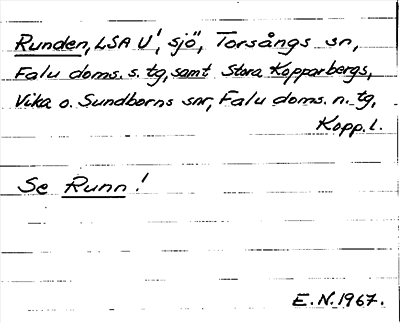 Runden, LSA U!, sjö", Torsångs sn,
Falu doms. s. tg, samt Stora Kopparbergs,
Vika o. Sundborns snr, Falu doms. n. tg,
Kopp. l.
Se Runn!
E.N. 1967.